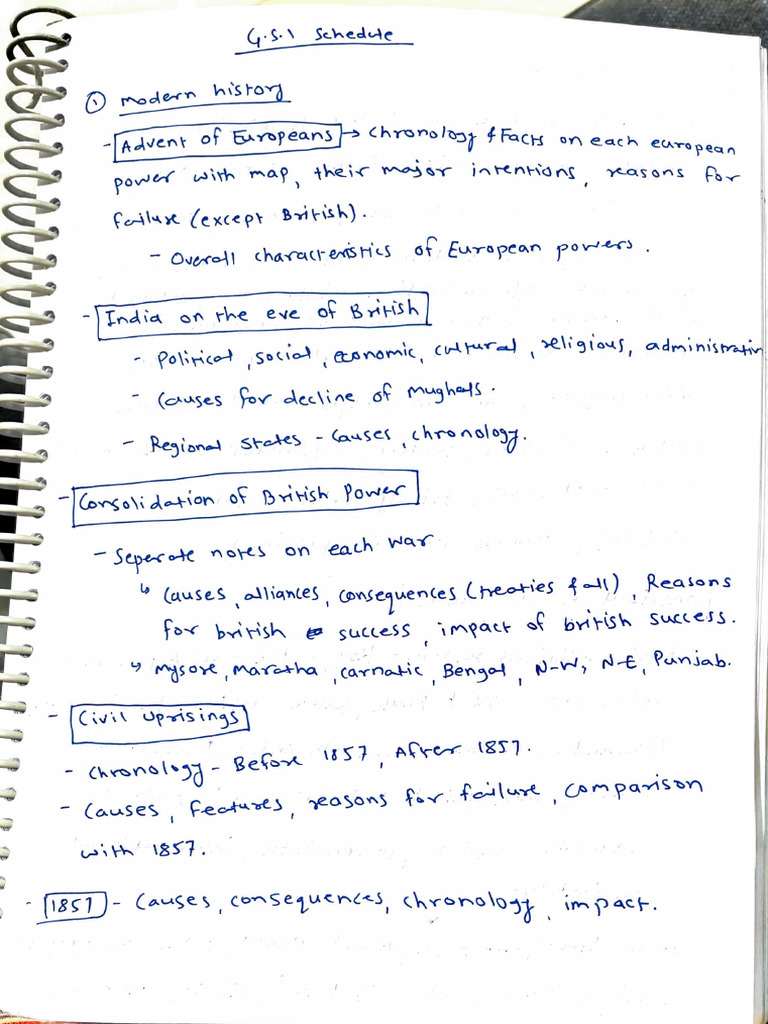 G.S.1 Schedule
① Modern history
- Advent of Europeans → Chronology & Facts on each european
power with map, their major intentions, reasons for
failure (except British).
- Overall characteristics of European powers.
- India on the eve of British
- Political, social, economic, cultural, religious, administrativ
- Causes for decline of mughals.
- Regional states - causes, chronology.
- Consolidation of British Power
- Seperate notes on each war
↳ Causes, alliances, consequences (treaties & all), Reasons
for british success, impact of british success.
↳ Mysore, Maratha, carnatic, Bengal, N-W, N-E, Punjab.
- Civil Uprisings
- Chronology - Before 1857, After 1857.
- Causes, Features, reasons for failure, comparison
with 1857.
- 1857 - Causes, consequences, chronology, impact.